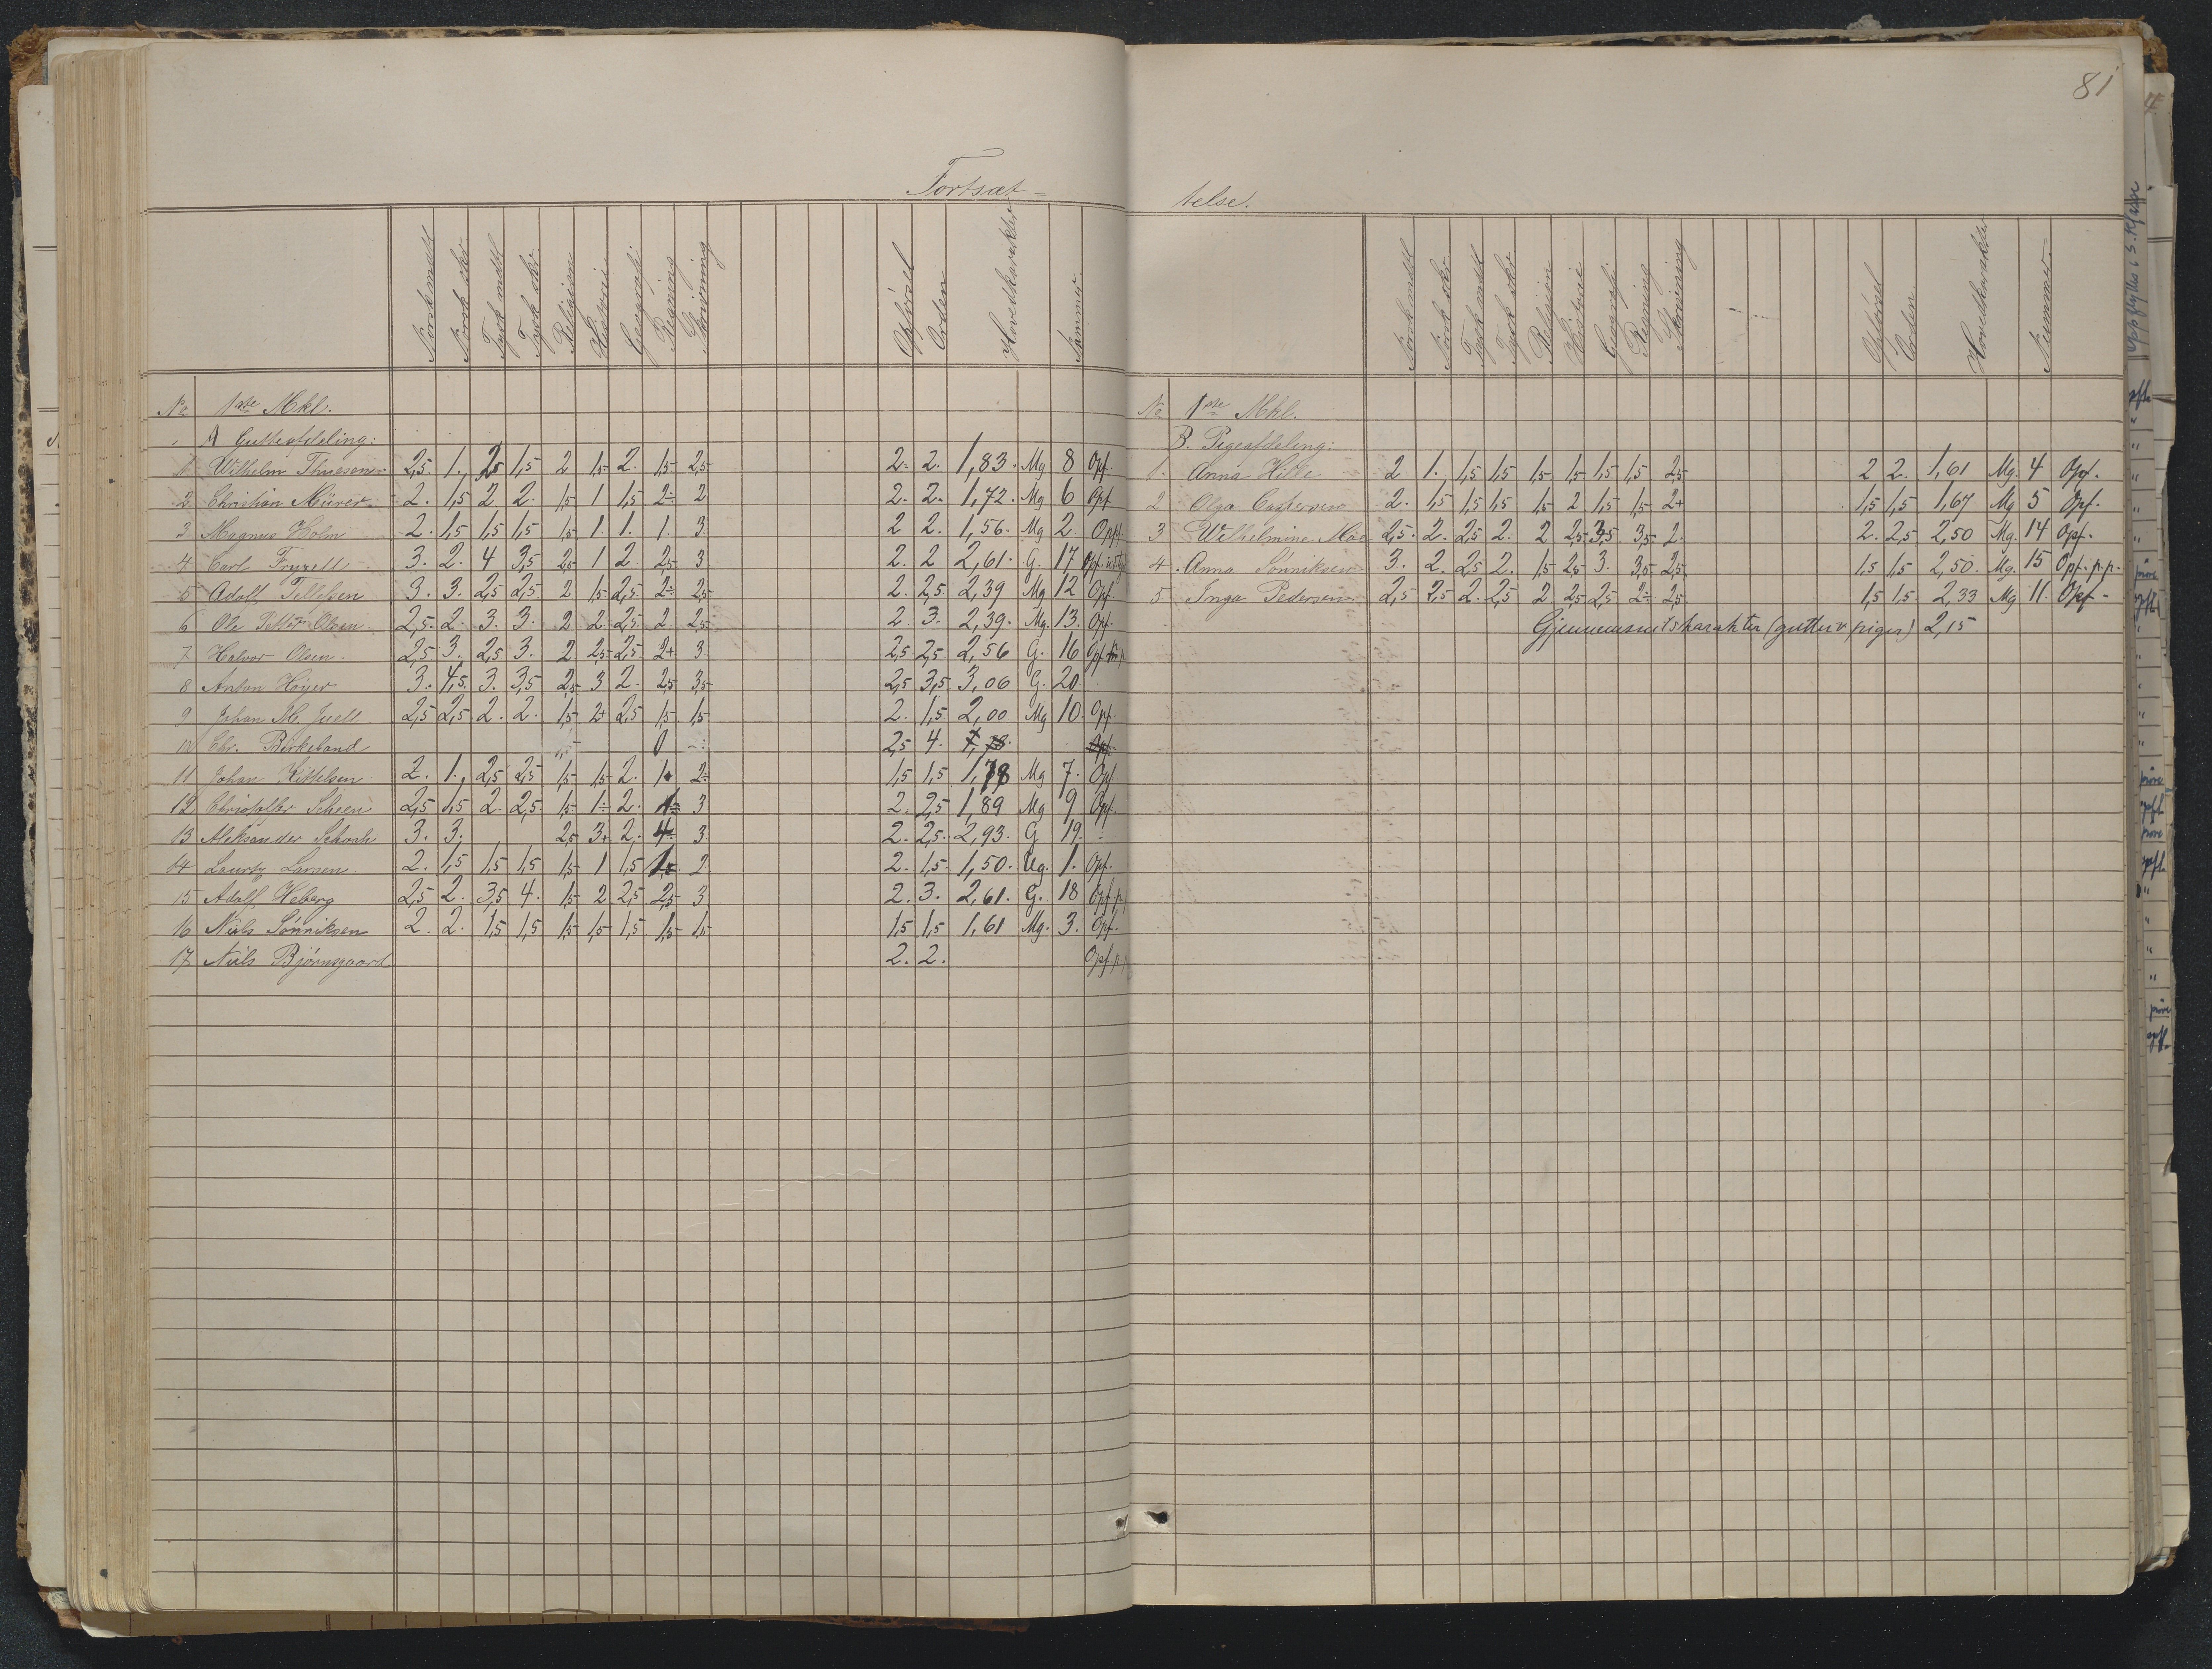 81
Fortsæt=
telse.
Norsk mdtl Norsk skr. Tysk mdtl Tysk skr. Religion Historie Geografi Regning Skrivning Opførsel Orden Hovedkarakter Nummer
No 1ste Mkl.
A Gutteafdeling:
1 Wilhelm Thuesen 2,5 1. 2,5 1,5 2 1,5 2. 1,5 2,5 2. 2. 1,83. Mg 8 Opf.
2 Christian Mürer 2. 1,5 2 2. 1,5 1 1,5 2÷ 2 2. 2. 1,72. Mg 6 Opf
3 Magnus Holm 2. 1,5 1,5 1,5 1,5 1. 1. 1. 3. 2 2. 1,56. Mg 2 Opf.
4 Carl Fryxell 3. 2. 4 3,5 2,5 1 2 2,5 3 2. 2 2,61. G. 17 Opf.
5 Adolf Tellefsen 3. 3. 2,5 2,5 2 1,5 2,5 2÷ 2,5 2. 2,5 2,39 Mg 12 Opf.
6 Ole Petter Olsen 2,5 2. 3. 3. 2 2. 2,5 2. 2,5 2. 3. 2,39. Mg. 13. Opf.
7 Halvor Olsen 2,5 3. 2,5 3. 2 2,5 2,5 2+ 3 2,5 2,5 2,56 G. 16 Opf.
8 Anton Høyer 3. 4,5. 3. 3,5 2,5 3 2. 2,5 3,5 2,5 3,5 3,06 G. 20.
9 Johan M. Juell 2,5 2,5 2. 2. 1,5 2+ 2,5 1,5 1,5 2. 1,5 2,00 Mg 10. Opf.
10 Chr. Birkeland 0 2,5 4. Opf.
11 Johan Kittelsen 2. 1. 2,5 2,5 1,5 1,5 2. 1. 2÷ 1,5 1,5 1,78 Mg 7. Opf
12 Christoffer Scheen 2,5 1,5 2. 2,5 1,5 1÷ 2. 1÷ 3 2. 2,5 1,89 Mg 9 Opf.
13 Aleksander Schach 3. 3. 2,5 3+ 2. 4÷ 3 2. 2,5. 2,93. G 19.
14 Lauritz Larsen 2. 1,5 1,5 1,5 1,5 1 1,5 1. 2 2. 1,5 1,50. Ug. 1. Opf.
15 Adolf Heberg 2,5 2. 3,5 4. 1,5 2 2,5 2,5 3 2. 3. 2,61. G. 18 Opf. p.
16 Niels Sønniksen 2. 2. 1,5 1,5 1,5 1,5 1,5 1,5 1,5 1,5 1,5 1,61 Mg. 3. Opf.
17 Niels Bjørnsgaard 2. 2. Opf. p.
Norsk mdtl Norsk skr Tysk mdtl Tysk skr Religion Historie Geografi Regning Skrivning Opførsel Orden Hovedkarakter Nummer.
No 1ste Mkl.
B. Pigeafdeling:
1. Anna Hille 2 1. 1,5 1,5 1,5 1,5 1,5 1,5 2,5 2 2. 1,61 Mg. 4 Opf.
2 Olga Castersen 2. 1,5 1,5 1,5 1,5 2 1,5 1,5 2+ 1,5 1,5 1,67 Mg 5 Opf.
3 Wilhelmine Moe 2,5. 2. 2,5 2. 2 2,5 3,5 3,5 2. 2. 2,5 2,50 Mg. 14 Opf.
4. Anna Sønniksen 3. 2. 2,5 2. 1,5 2,5 3. 3,5 2,5 1,5 1,5 2,50. Mg. 15 Opf. p.p.
5 Inga Pedersen 2,5 2,5 2. 2,5 2 2,5 2,5 2÷ 2,5 1,5 1,5 2,33 Mg 11. Opf.
Gjennemsnitskarakter (gutter & piger) 2,15